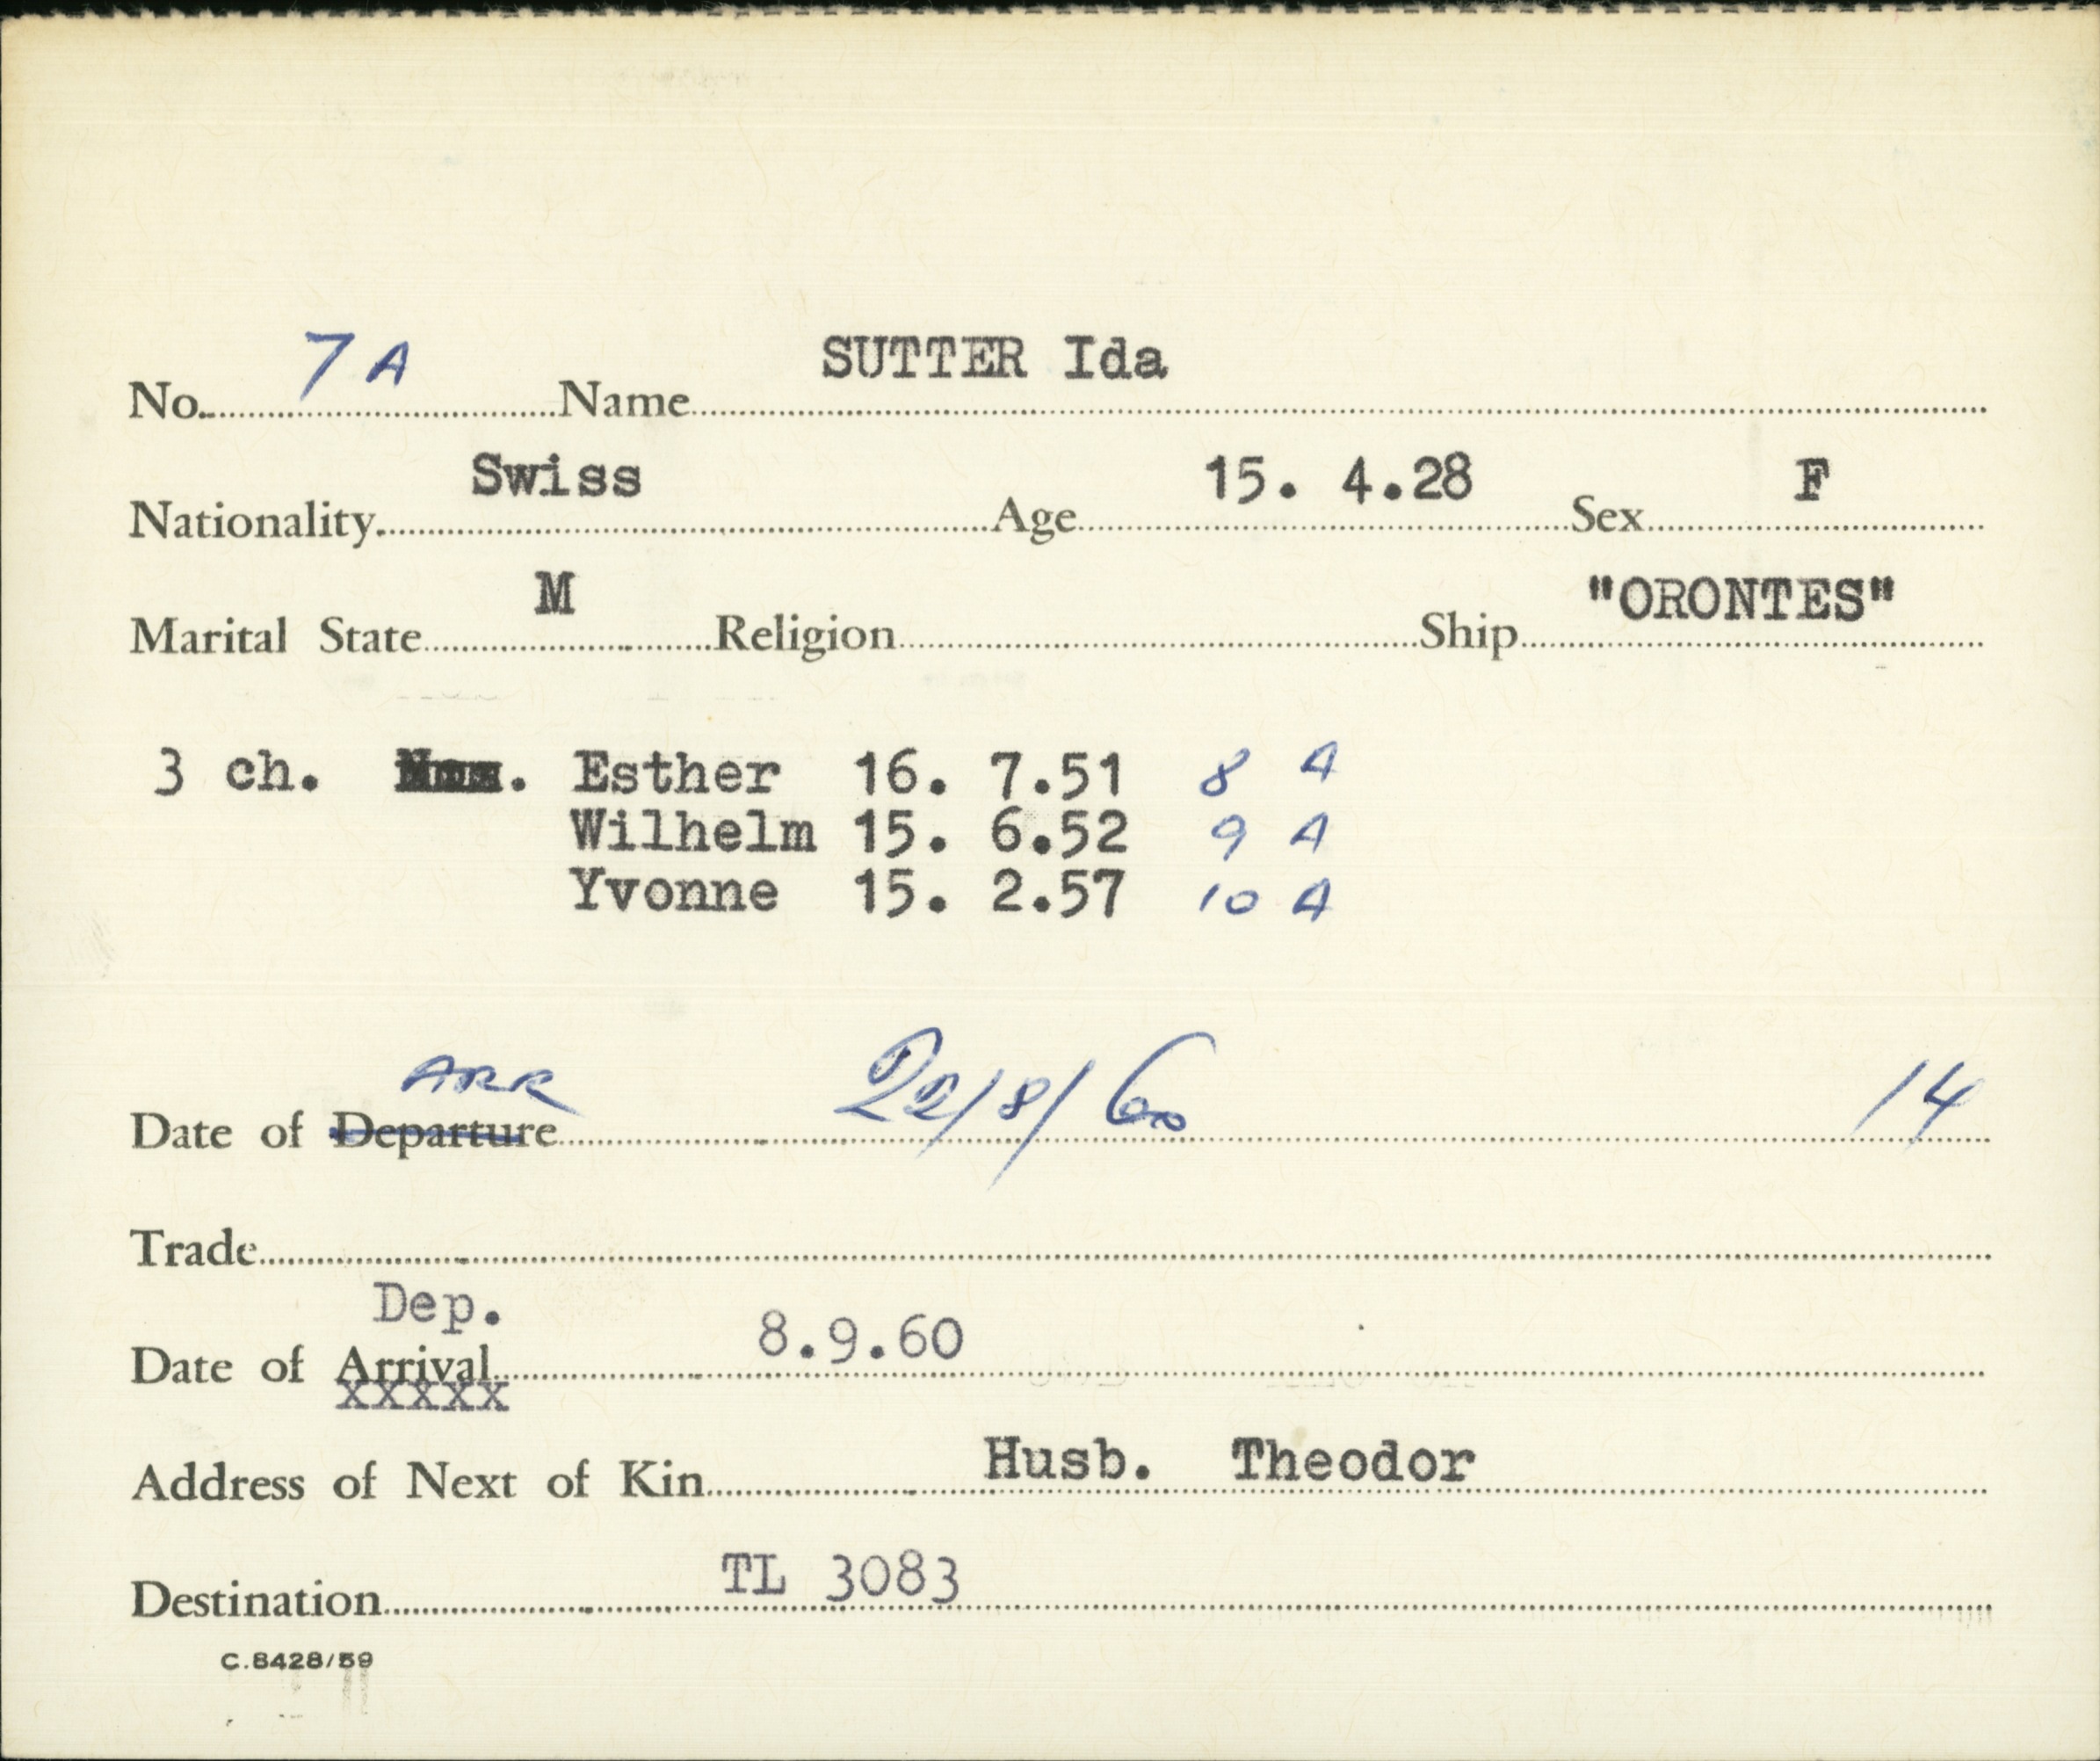 No. 7A Name SUTTER Ida
Nationality Swiss Age 15. 4.28 Sex F
Marital State M Religion Ship "ORONTES"
3 ch. Esther 16. 7.51 8 A
Wilhelm 15. 6.52 9 A
Yvonne 15. 2.57 10 A
ARR
Date of Departure 22/8/60 14
Trade
Dep.
Date of Arrival 8.9.60
XXXXX
Address of Next of Kin Husb. Theodor
Destination TL 3083
C.8428/59